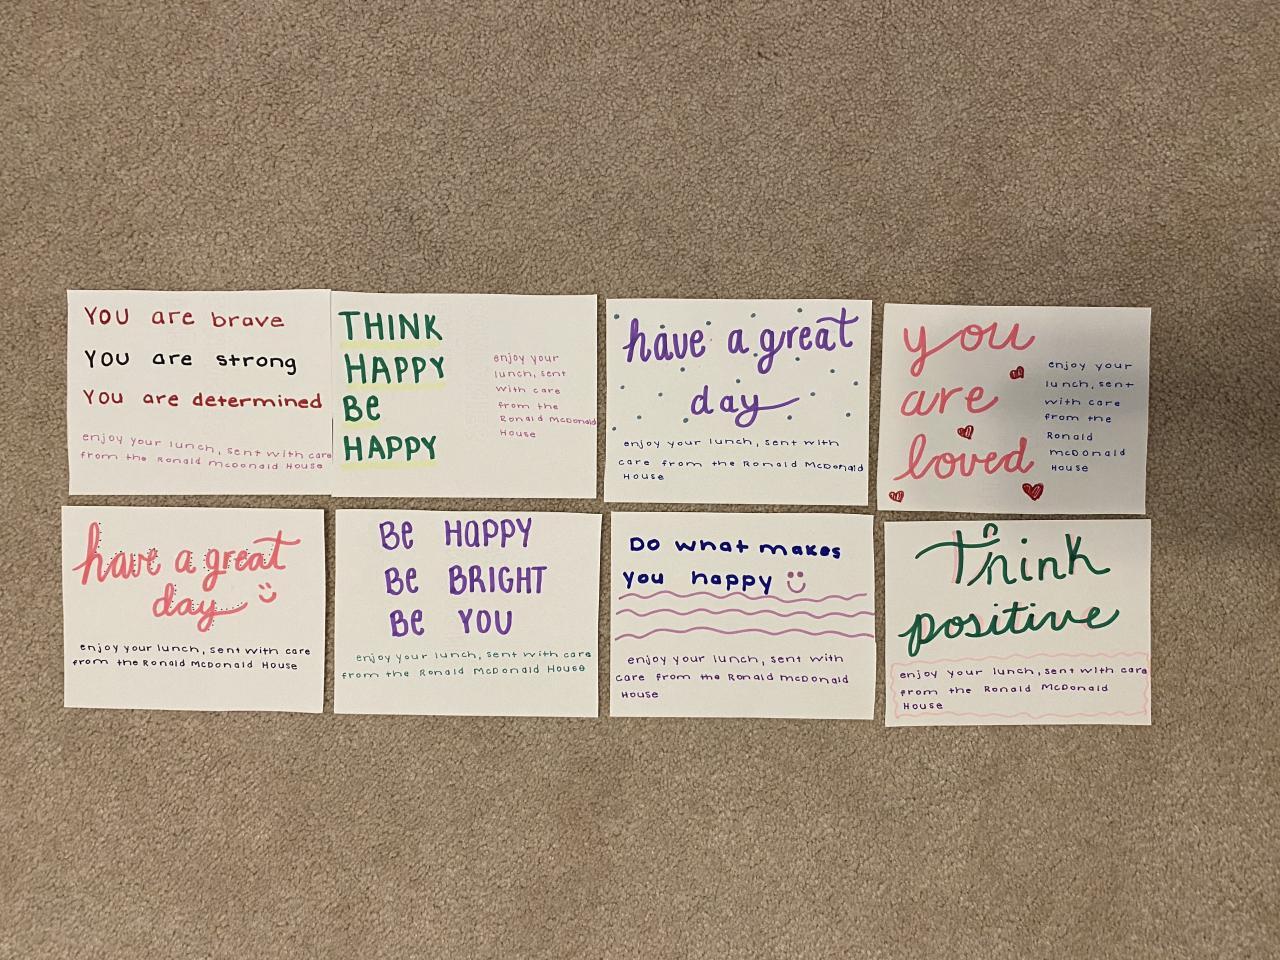 You are brave
You are strong
You are determined
enjoy your lunch, sent with care
from the Ronald McDonald House
THINK
HAPPY
Be
HAPPY
enjoy your
lunch, sent
with care
from the
Ronald McDonald
House
have a great
day
enjoy your lunch, sent with
care from the Ronald McDonald
House
you
are
loved
enjoy your
lunch, sent
with care
from the
Ronald
McDonald
House
have a great
day
enjoy your lunch, sent with care
from the Ronald McDonald House
Be HAPPY
Be BRIGHT
Be YOU
enjoy your lunch, sent with care
from the Ronald McDonald House
Do what makes
you happy
enjoy your lunch, sent with
care from the Ronald McDonald
House
Think
positive
enjoy your lunch, sent with care
from the Ronald McDonald
House